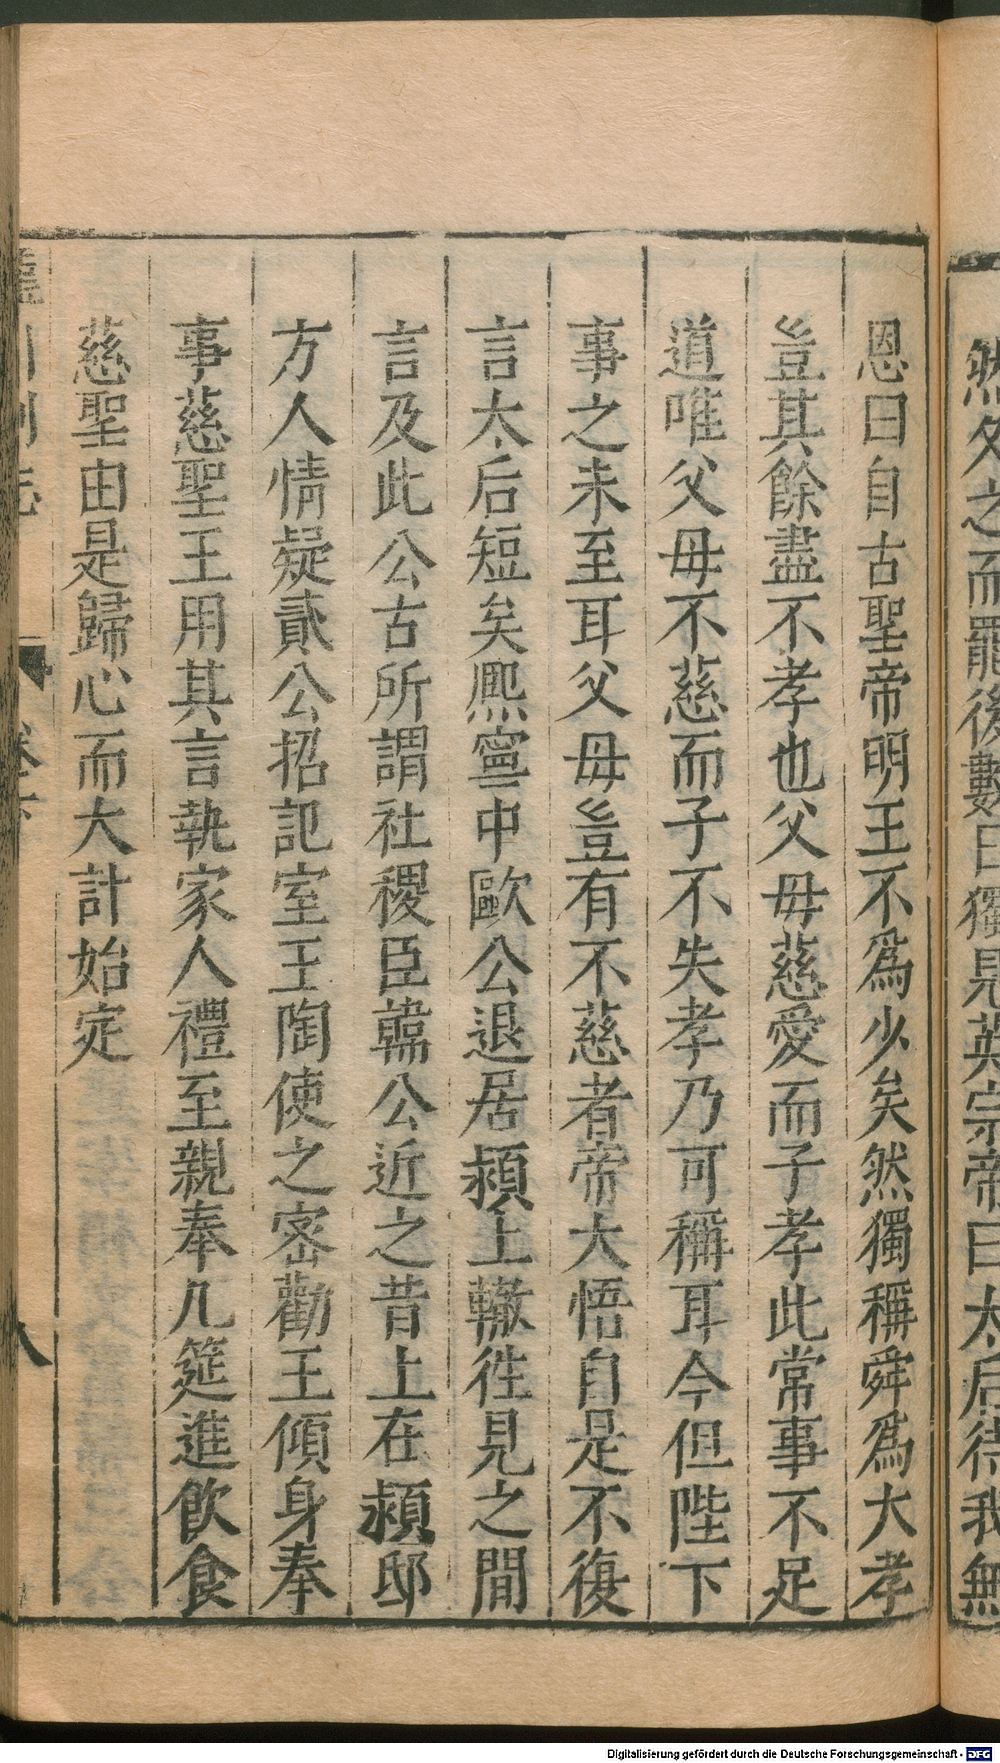 然久之而罷後數日獨見英宗帝曰太后待我無
恩曰自古聖帝明王不爲少矣然獨稱舜爲大孝
豈其餘盡不孝也父母慈愛而子孝此常事不足
道唯父母不慈而子不失孝乃可稱耳今但陛下
事之未至耳父母豈有不慈者帝大悟自是不復
言太后短矣熈寧中歐公退居潁上轍徃見之間
言及此公古所謂社稷臣韓公近之昔上在潁邸
方人情疑貳公招記室王陶使之密勸王傾身奉
事慈聖王用其言執家人禮至親奉几筵進飲食
慈聖由是歸心而大計始定
龍川別志
卷下
八
Digitalisierung gefördert durch die Deutsche Forschungsgemeinschaft - DFG